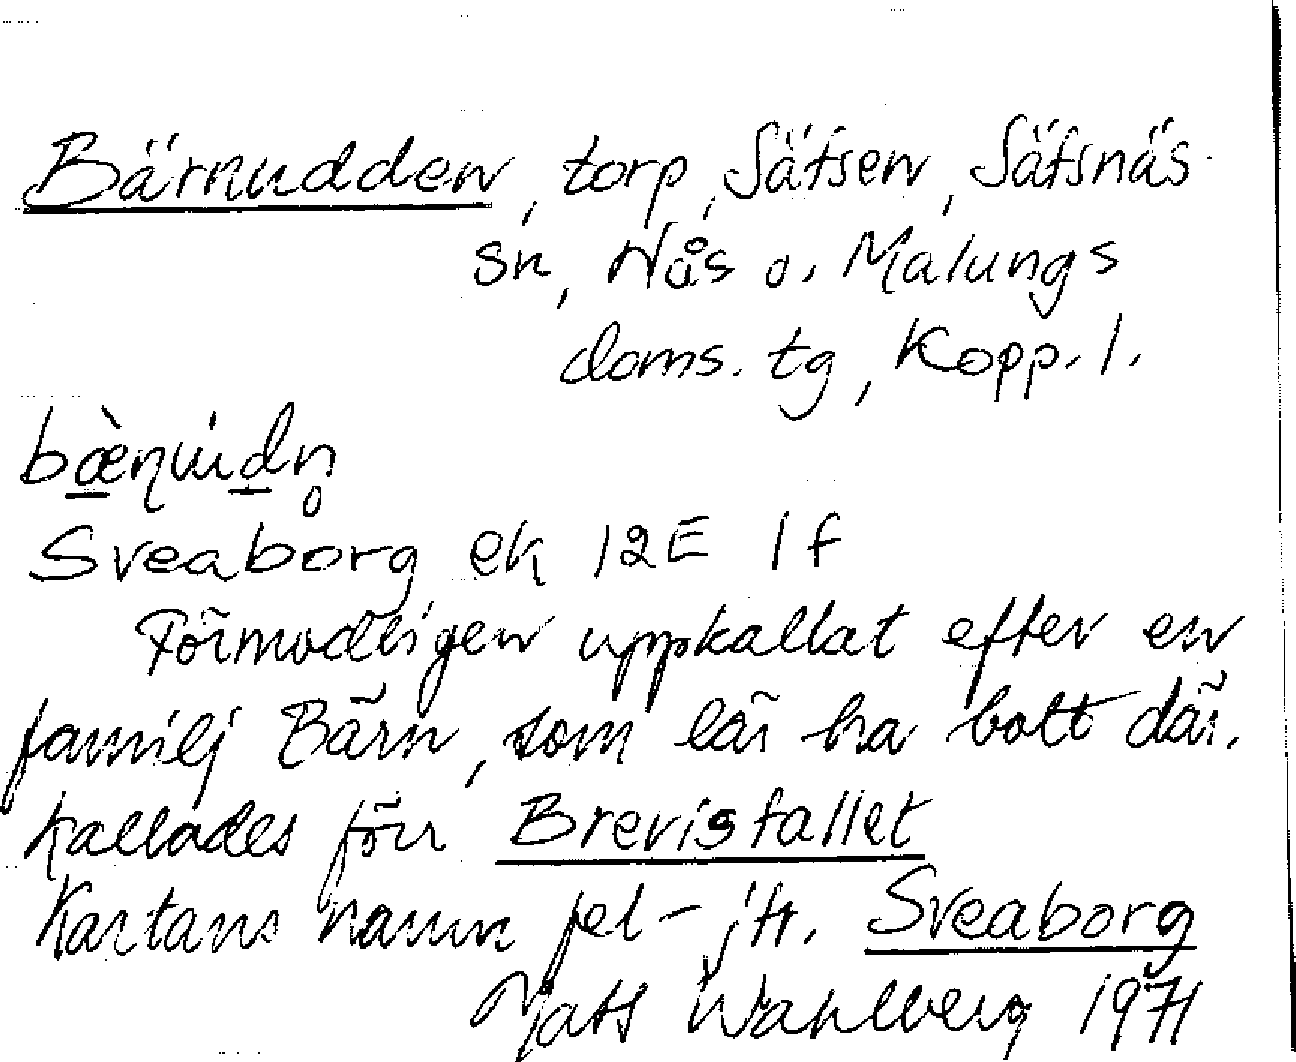 Bärnudden, torp, Säfsen, Säfsnäs
sn, Nås o. Malungs
doms. tg, Kopp. l.
bæ̀ṇudn̥
Sveaborg ek 12E 1f
Förmodligen uppkallat efter en
familj Bärn, som lär ha bott där.
Kallades förr Brevisfallet
Kartans namn fel - jfr. Sveaborg
Mats Wahlberg 1971